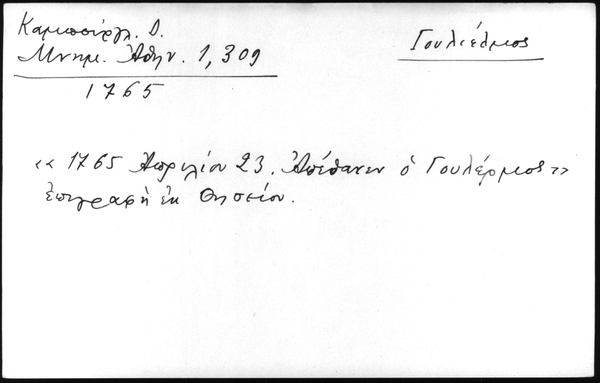 Καμπούρογλ. Δ.
Μνημ. Ἀθην. 1,309
Γουλιέλμος
1765
«1765 Ἀπριλίου 23. Ἀπέθανεν ὁ Γουλέρμος»
ἐπιγραφὴ ἐκ Θησείου.